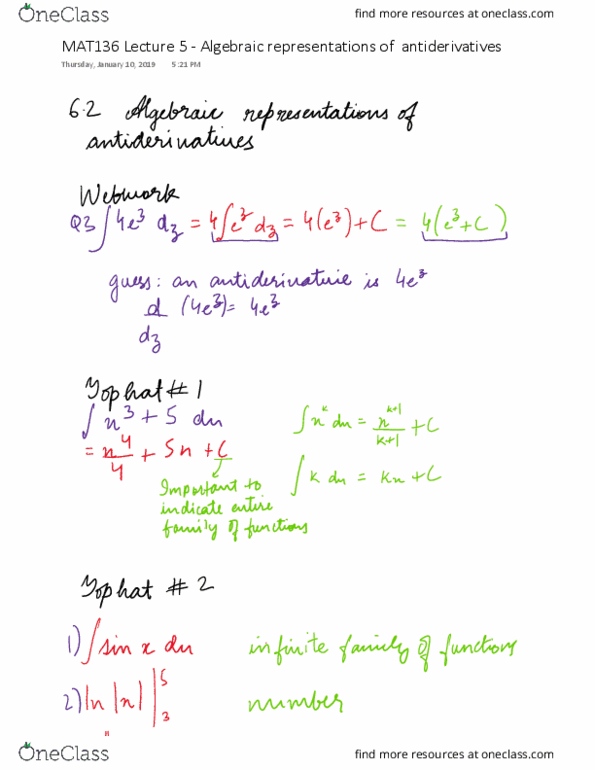 OneClass
find more resources at oneclass.com
MAT136 Lecture 5 - Algebraic representations of antiderivatives
Thursday, January 10, 2019 5:21 PM
6.2 Algebraic representations of
antiderivatives
Webwork
Q3 ∫4e^z dz = 4∫e^z dz = 4(e^z)+C = 4(e^z+C)
guess: an antiderivative is 4e^z
d (4e^z) = 4e^z
dz
Tophat #1
∫x^3+5 dx
= x^4/4 + 5x + C
Important to
indicate entire
family of functions
∫x^k dx = x^(k+1)/(k+1) + C
∫k dx = kx + C
Tophat #2
1) ∫sin x dx infinite family of functions
2) ln |x| |_3^5 number
OneClass
find more resources at oneclass.com